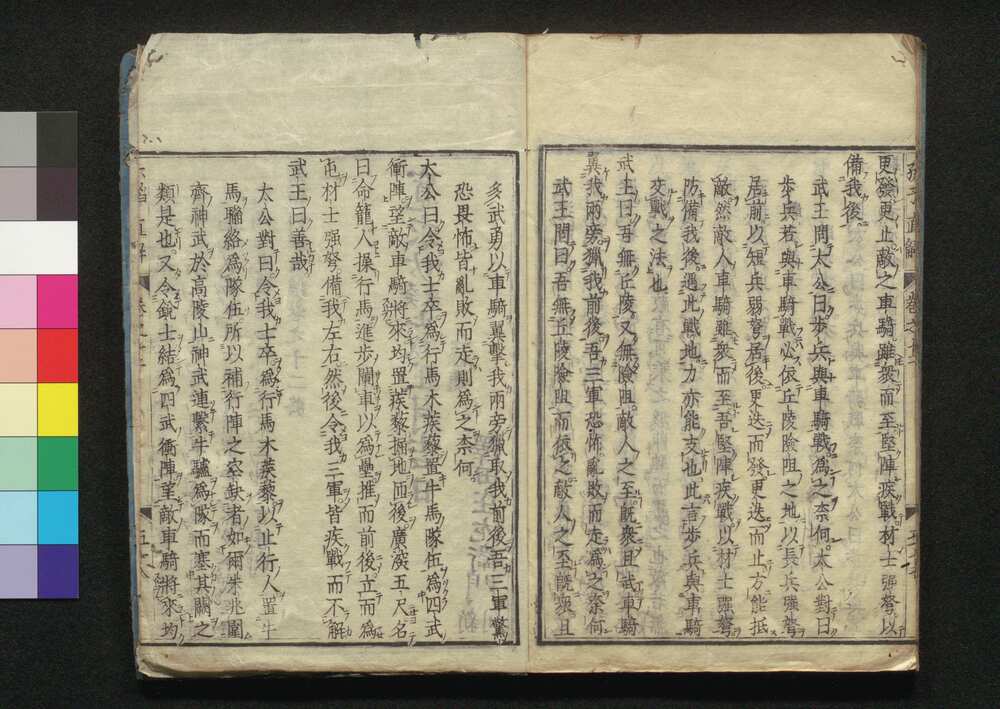 更發更止敵之車騎雖衆而至堅陣疾戰材士強弩以
備我後
武王問太公曰步兵與車騎戰爲之柰何太公對曰
步兵若與車騎戰必依丘陵險阻之地以長兵強弩
居前以短兵弱弩居後更迭而發更迭而止方能抵
敵然敵人車騎雖衆而至吾堅陣疾戰以材士強弩
防備我後遇此戰地力亦能支也此言步兵與車騎
交戰之法也
武王曰吾無丘陵又無險阻敵人之至旣衆且武車騎
翼我兩旁獵我前後吾三軍恐怖亂敗而走爲之柰何
武王問曰吾無丘陵險阻而依之敵人之至旣衆且
多武勇以車騎翼擊我兩旁獵取我前後吾三軍驚
恐畏怖皆亂敗而走則爲之柰何
太公曰令我士卒爲行馬木蒺藜置牛馬隊伍爲四武
衝陣望敵車騎將來均置蒺藜掘地匝後廣深五尺名
曰命籠人操行馬進步闌車以爲壘推而前後立而爲
屯材士强弩備我左右然後令我三軍皆疾戰而不解
武王曰善哉
太公對曰令我士卒爲行馬木蒺藜以止行人置牛
馬聯絡爲隊伍所以補行陣之空缺者如爾朱兆圍
齊神武於高陵山神武連繫牛驢爲隊而塞其關之
類是也又令銳士結爲四武衝陣望敵車騎將來均